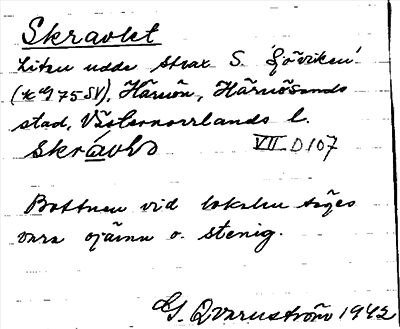 Skravlet
Liten udde strax S. Sjöviken
(km 75 SV), Härnön, Härnösands
stad, Västernorrlands l.
skrávlə VII D 107
Bottnen vid lokalen säges
vara ojämn o. stenig.
G. Qvarnström 1942